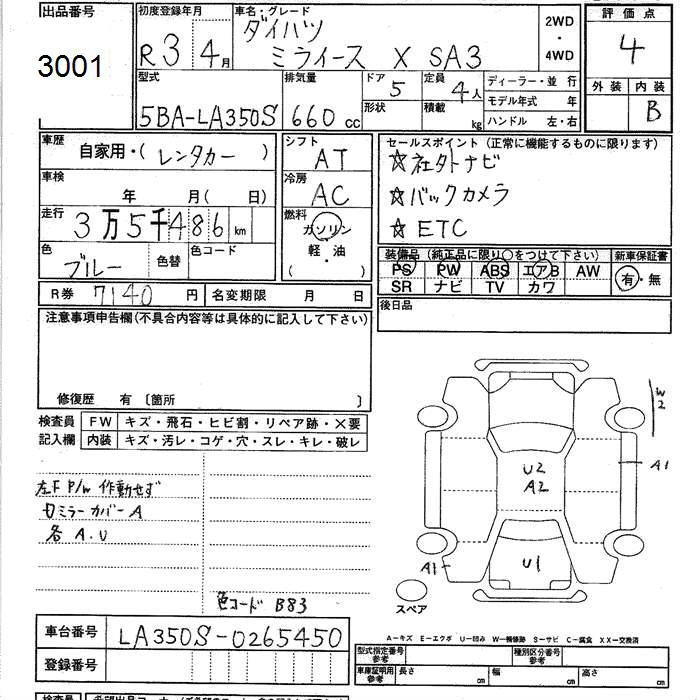 出品番号 初度登録年月 車名・グレード 2WD・4WD 評価点
3001 R3 4月 ダイハツ ミライース X SA3 4
型式 排気量 ドア 5 定員 4人 ディーラー・並 行 外装 内装
5BA-LA350S 660cc 形状 積載 kg モデル年式 年 B
ハンドル 左・右
車歴 自家用・( レンタカー ) シフト AT セールスポイント (正常に機能するものに限ります)
☆社外ナビ
車検 年 月( 日) 冷房 AC ☆バックカメラ
走行 3万5千486km 燃料 ガソリン ☆ETC
軽・油
( )
色 ブルー 色替 色コード 装備品 (純正品に限り○をつけて下さい) 新車保証書
PS PW ABS エアB AW 有・無
SR ナビ TV カワ
R券 7140円 名変期限 月 日 後日品
注意事項申告欄(不具合内容等は具体的に記入して下さい)
修復歴 有 〔箇所 〕
検査員 FW キズ・飛石・ヒビ割・リペア跡・×要
記入欄 内装 キズ・汚レ・コゲ・穴・スレ・キレ・破レ
W2
A1
U2
A2
左F P/W 作動せず
ミラーカバーA
各 A.U
U1
A1
スペア
色コード B83
A-キズ E-エクボ U-凹み W-補修跡 S-サビ C-腐食 XX-交換済
車台番号 LA350S-0265450
型式指定番号 参考 種別区分番号 参考
登録番号
車庫証明用 参考 長さ cm 幅 cm 高さ cm